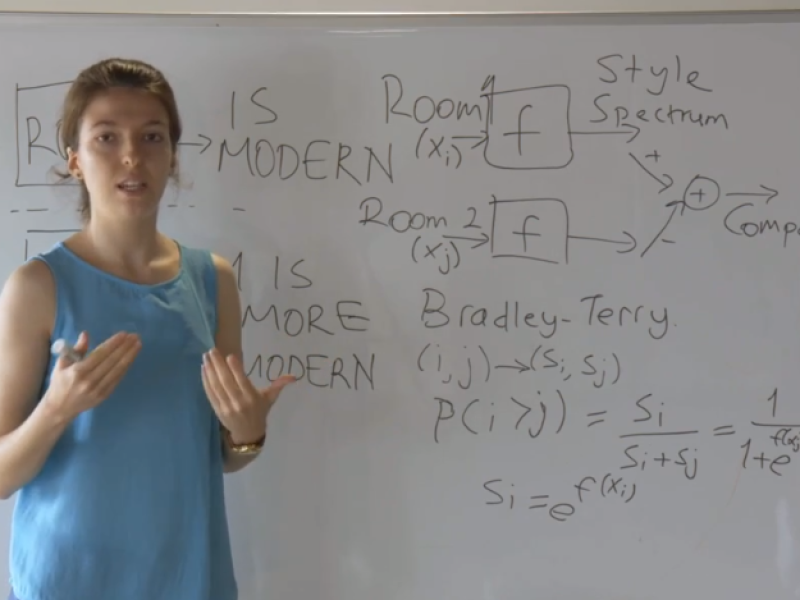 IS
MODERN
1 IS
MORE
MODERN
Room 1
(xi)
f
Style
Spectrum
+
Room 2
(xj)
f
+
-
Bradley-Terry.
(i,j)→(si, sj)
P(i>j) = si / si+sj = 1 / 1+e
si = e^f(xi)